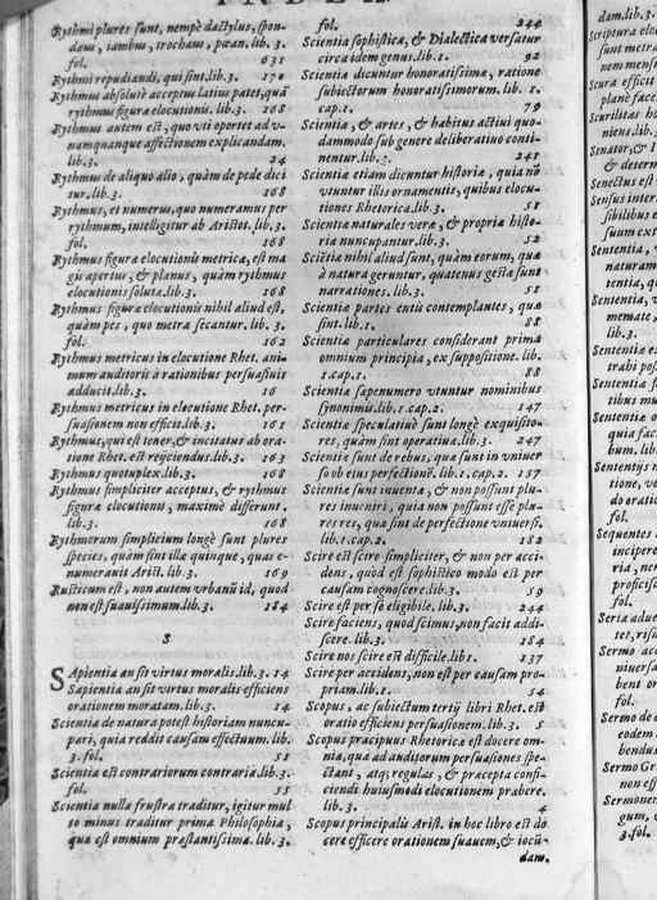 INDEX
Rythmi plures sunt, nempè dactylus, spon-
daus, iambus, trocheus, pæan. lib. 3.
fol. 631
Rythmi repudiandi, qui sint. lib. 3. 170
Rythmus absolutè acceptus latius patet, quã
rythmus figura elocutionis. lib. 3. 168
Rythmus autem est, quo vti oportet ad v-
namquanque affectionem explicandam.
lib. 3. 24
Rythmus de aliquo alio, quàm de pede dici
tur. lib. 3. 168
Rythmus, et numerus, quo numeramus per
rythmum, intelligitur ab Aristot. lib. 3.
fol. 168
Rythmus figura elocutionis metrica, est ma
gis apertus, & planus, quàm rythmus
elocutionis soluta. lib. 3. 168
Rythmus figura elocutionis nihil aliud est,
quàm pes, quo metra secantur. lib. 3.
fol. 162
Rythmus metricus in elocutione Rhet. ani-
mum auditoris à rationibus persuasiuis
adducit. lib. 3. 16
Rythmus metricus in elocutione Rhet. per-
suasionem non efficit. lib. 3. 161
Rythmus, qui est tener, & incitatus ab ora-
tione Rhet. est reijciendus. lib. 3. 163
Rythmus quotuplex. lib. 3. 168
Rythmus simpliciter acceptus, & rythmus
figura elocutionis, maximè differunt.
lib. 3. 168
Rythmorum simplicium longè sunt plures
species, quàm sint illæ quinque, quas e-
numerauit Arist. lib. 3. 169
Rusticum est, non autem vrbanũ id, quod
non est suauissimum. lib. 3. 184
S
SApientia an sit virtus moralis. lib. 3. 14
Sapientia an sit virtus moralis efficiens
orationem moratam. lib. 3. 14
Scientia de natura potest historiam nuncu-
pari, quia reddit causam effectuum. lib.
3. fol. 51
Scientia est contrariorum contraria. lib. 3.
fol. 55
Scientia nulla frustra traditur, igitur mul
to minus traditur prima Philosophia,
quæ est omnium præstantissima. lib. 3.
fol. 244
Scientia sophistica, & Dialectica versatur
circa idem genus. lib. 1. 92
Scientiæ dicuntur honoratissimæ, ratione
subiectorum honoratissimorum. lib. 1.
cap. 1. 79
Scientiæ, & artes, & habitus actiui quo-
dammodo sub genere deliberatiuo conti-
nentur. lib. 3. 241
Scientiæ etiam dicuntur historiæ, quia nõ
vtuntur illis ornamentis, quibus elocu-
tiones Rhetorica. lib. 3. 51
Scientiæ naturales veræ, & propriæ histo-
ria nuncupantur. lib. 3. 52
Sciẽtiæ nihil aliud sunt, quàm eorum, quæ
à natura geruntur, quatenus gesta sunt
narrationes. lib. 3. 51
Scientiæ partes entis contemplantes, quæ
sint. lib. 1. 88
Scientiæ particulares considerant prima
omnium principia, ex suppositione. lib.
1. cap. 1. 88
Scientiæ sæpenumero vtuntur nominibus
synonimis. lib. 1. cap. 2. 147
Scientiæ speculatiuæ sunt longè exquisitio-
res, quàm sint operatiuæ. lib. 3. 247
Scientiæ sunt de rebus, quæ sunt in vniuer
so ob eius perfectionẽ. lib. 1. cap. 2. 157
Scientiæ sunt inuentæ, & non possunt plu-
res inueniri, quia non possunt esse plu-
res res, quæ sint de perfectione vniuersi.
lib. 1. cap. 2. 182
Scire est scire simpliciter, & non per acci-
dens, quod est sophistico modo est per
causam cognoscere. lib. 3. 59
Scire est per se eligibile. lib. 3. 244
Scire faciens, quod scimus, non facit addi-
scere. lib. 3. 184
Scire nos scire est difficile. lib 1. 137
Scire per accidens, non est per causam pro-
priam. lib. 1. 54
Scopus, ac subiectum tertij libri Rhet. est
oratio efficiens persuasionem. lib. 3. 5
Scopus præcipuus Rhetorica est docere om-
nia, quæ ad auditorum persuasiones spe-
ctant, atq; regulas, & præcepta confi-
ciendi huiusmodi elocutionem præbere.
lib. 3. 4
Scopus principalis Arist. in hoc libro est do
cere efficere orationem suauem, & iocũ-
dam.
dam. lib. 3.
Scriptura elo
sunt metra
nem mensu
Scura efficit
planè face
Scurilitas ho
niens. lib.
Senator, & I
& determ
Senectus est
Sensus inter
sibilibus e
suum ext
Sententia, v
naturam
tentia, qu
Sententia, v
memate,
lib. 3.
Sententia es
trahi pos
Sententia s
tibus mu
Sententia o
quia fac
bum. lib.
Sententijs n
tione, vo
do oratio
fol.
Sequentes
incipere
ria, nem
proficisc
fol.
Seria adue
tet, risu
Sermo acc
niuersa
bent or
fol.
Sermo de
eodem
bendus
Sermo Gr
non eff
Sermonem
gum, v
3. fol.